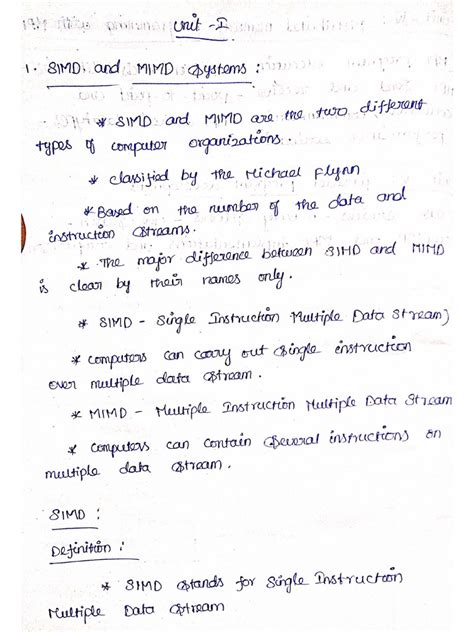 Unit - I
1. SIMD and MIMD Systems :
* SIMD and MIMD are the two different
types of computer organizations.
* classified by the Michael Flynn
* Based on the number of the data and
instruction streams.
* The major difference between SIMD and MIMD
is clear by their names only.
* SIMD - Single Instruction Multiple Data Stream)
* computers can carry out single instruction
over multiple data stream.
* MIMD - Multiple Instruction Multiple Data Stream
* computers can contain several instructions on
multiple data stream.
SIMD :
Definition :
* SIMD stands for Single Instruction
Multiple Data stream